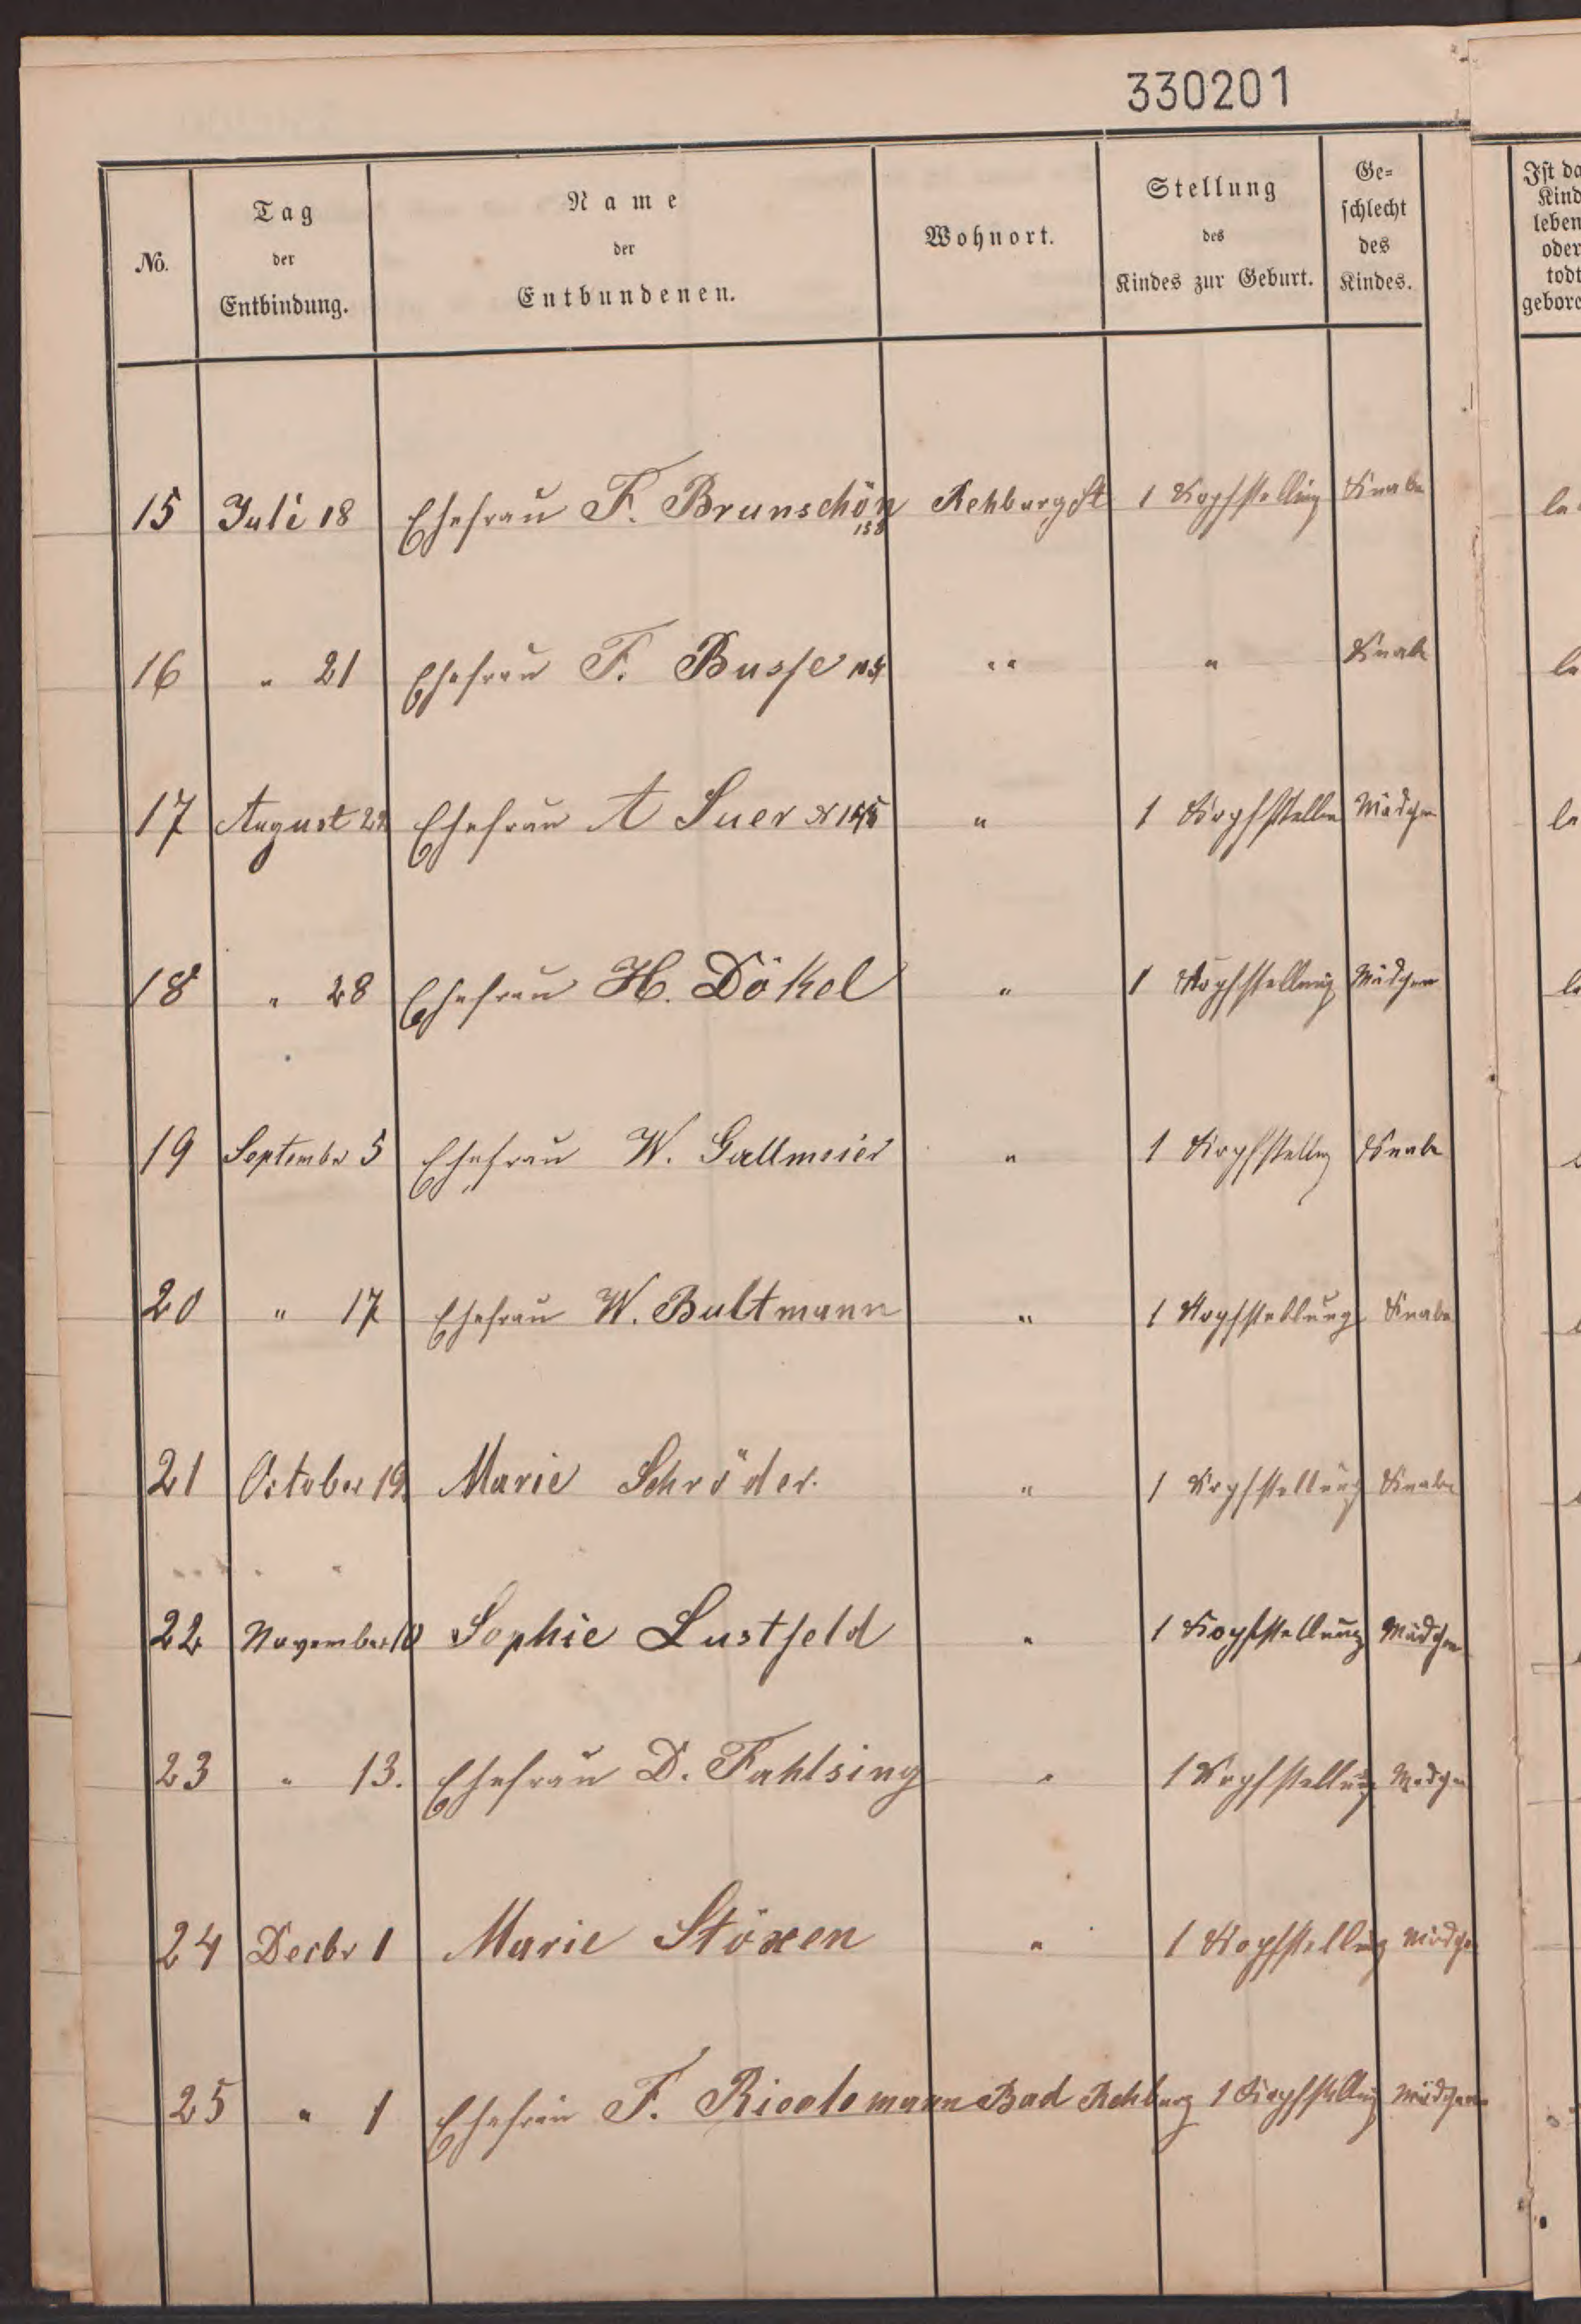 330201
No. Tag der Entbindung. Name der Entbundenen. Wohnort. Stellung des Kindes zur Geburt. Ge= schlecht des Kindes. Ist da Kind leben oder todt gebore
15 Juli 18 Ehefrau F. Brunschön 158 Rehburg St 1 Kopfstellung Knabe le
16 " 21 Ehefrau F. Busse " " " Knabe le
17 August 22 Ehefrau A Suer " 1 Kopfstellun Mädchen le
18 " 28 Ehefrau H. Dökel " 1 Kopfstellung Mädchen le
19 September 5 Ehefrau W. Gallmeier " 1 Kopfstellung Knabe
20 " 17 Ehefrau W. Bultmann " 1 Kopfstellung Knabe
21 October 19. Marie Schröder. " 1 Kopfstellung Knabe
22 November 10 Sophie Lustfeld " 1 Kopfstellung Mädchen
23 " 13. Ehefrau D. Fahlsing " 1 Kopfstellung Mädchen
24 Decbr 1 Marie Stöxen " 1 Kopfstellung Mädchen
25 " 1 Ehefrau F. Bad Rehburg 1 Kopfstellung Mädchen